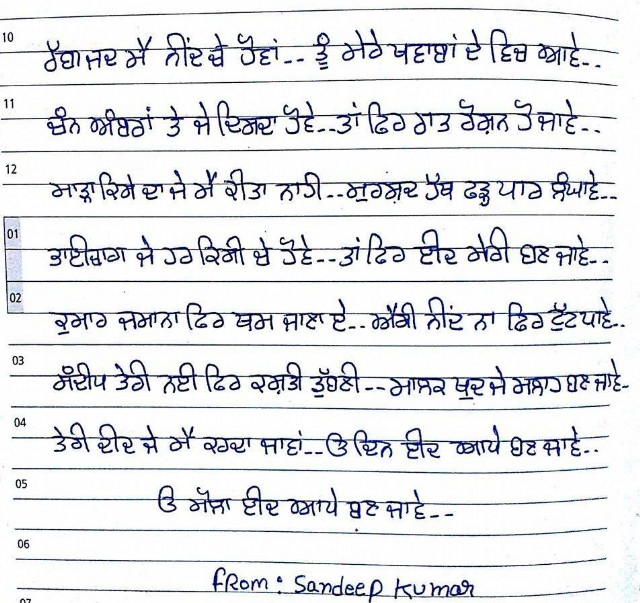 10
ਰੱਬਾ ਜਦ ਮੈਂ ਨੀਂਦ ਚੋ ਹੋਵਾਂ.. ਤੂੰ ਮੇਰੇ ਖਵਾਬਾਂ ਦੇ ਵਿਚ ਆਵੇ..
11
ਚੰਨ ਅੰਬਰਾਂ ਤੇ ਜੇ ਦਿਸਦਾ ਹੋਵੇ..ਤਾਂ ਫਿਰ ਰਾਤ ਰੋਸ਼ਨ ਹੋ ਜਾਵੇ..
12
ਮਾੜਾ ਕਿਸੇ ਦਾ ਜੇ ਮੈਂ ਕੀਤਾ ਨਾਹੀ..ਮੁਰਸ਼ਦ ਹੱਥ ਫੜ੍ਹ ਪਾਰ ਲੰਘਾਵੇ..
01
ਭਾਈਚਾਰਾ ਜੇ ਹਰ ਕਿਸੀ ਚੋ ਹੋਵੇ..ਤਾਂ ਫਿਰ ਈਦ ਮੇਰੀ ਬਣ ਜਾਵੇ..
02
ਕੁਮਾਰ ਜਮਾਨਾ ਫਿਰ ਥਮ ਜਾਣਾ ਏ..ਐਸੀ ਨੀਂਦ ਨਾ ਫਿਰ ਟੁੱਟ ਪਾਵੇ..
03
ਸੰਦੀਪ ਤੇਰੀ ਨਈ ਫਿਰ ਕਸ਼ਤੀ ਡੁੱਬਣੀ--ਮਾਲਕ ਖੁਦ ਜੇ ਮਲਾਹ ਬਣ ਜਾਵੇ-
04
ਤੇਰੀ ਦੀਦ ਜੇ ਮੈਂ ਕਰਦਾ ਜਾਵਾਂ..ਓ ਦਿਨ ਈਦ ਆਪੇ ਬਣ ਜਾਵੇ..
05
ਓ ਮੌਲਾ ਈਦ ਆਪੇ ਬਣ ਜਾਵੇ--
06
from: Sandeep Kumar
07